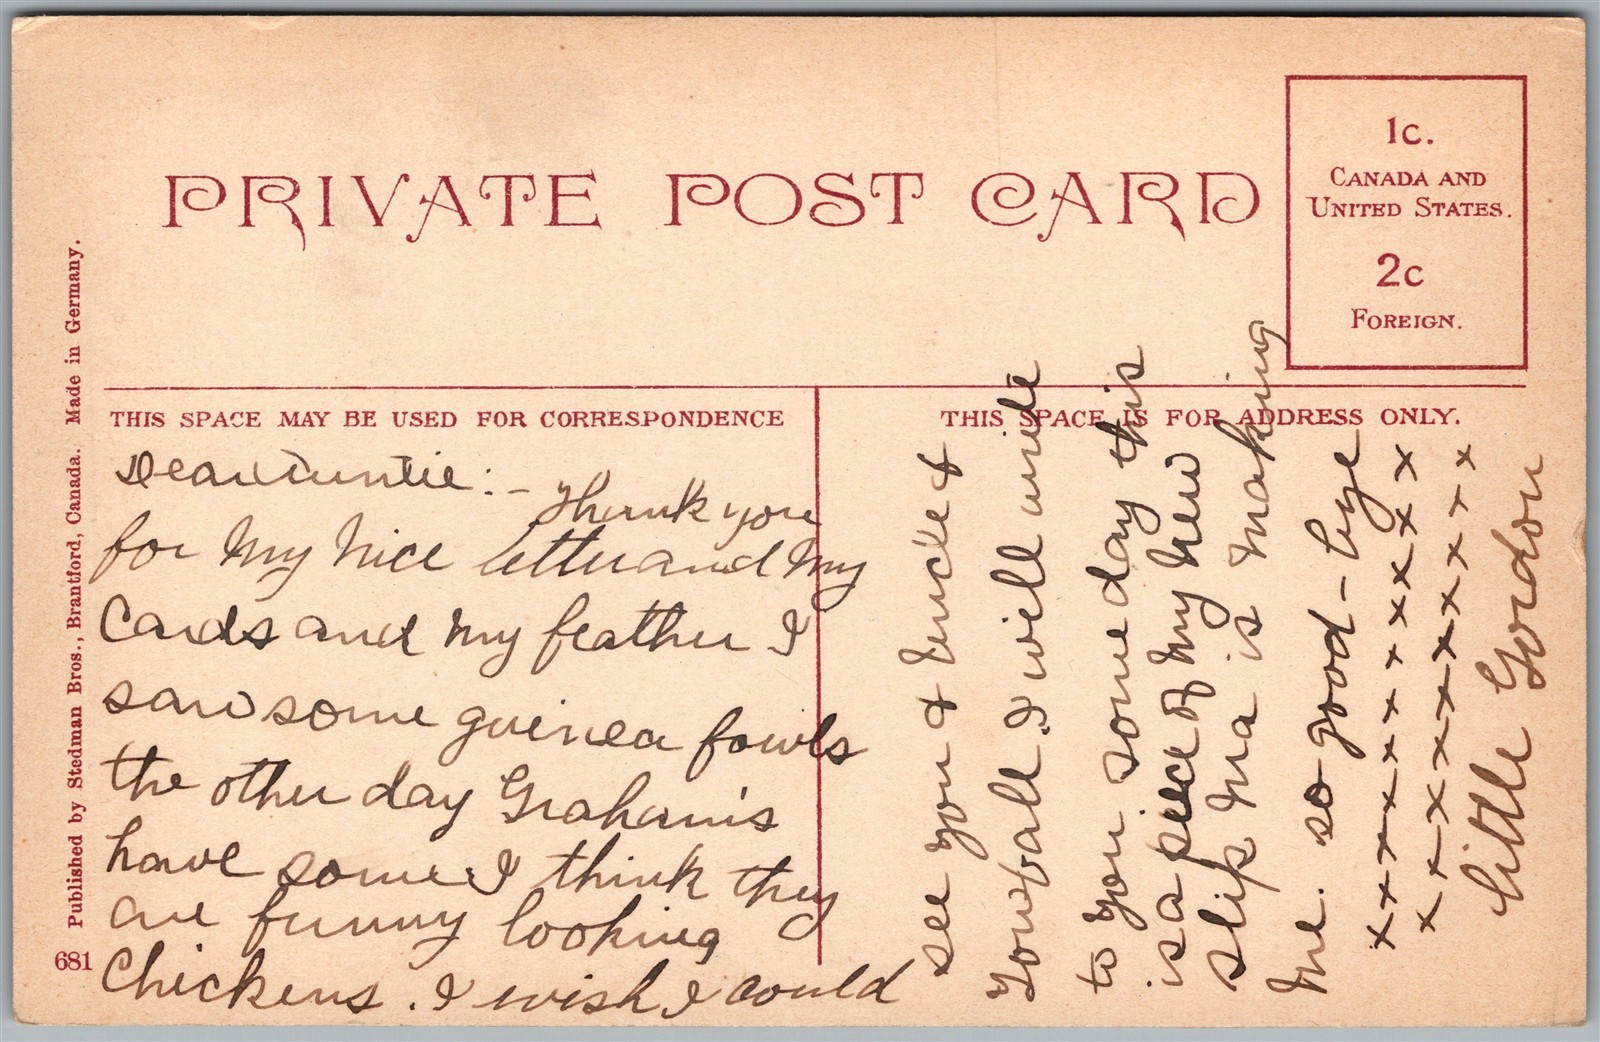 PRIVATE POST CARD
1c.
CANADA AND
UNITED STATES.
2c
FOREIGN.
Published by Stedman Bros., Brantford, Canada. Made in Germany.
681
THIS SPACE MAY BE USED FOR CORRESPONDENCE
THIS SPACE IS FOR ADDRESS ONLY.
Dear Auntie:- Thank you
for my nice letter and my
cards and my feather I
saw some guinea fowls
the other day Graham's
have some I think they
are funny looking
chickens. I wish I could
see you & Uncle &
You & all. I will write
to you some day this
is a piece of my new
slip Ma is making
me. so good-bye
x x x x x x x x x x
x x x x x x x x x x
Little Gordon